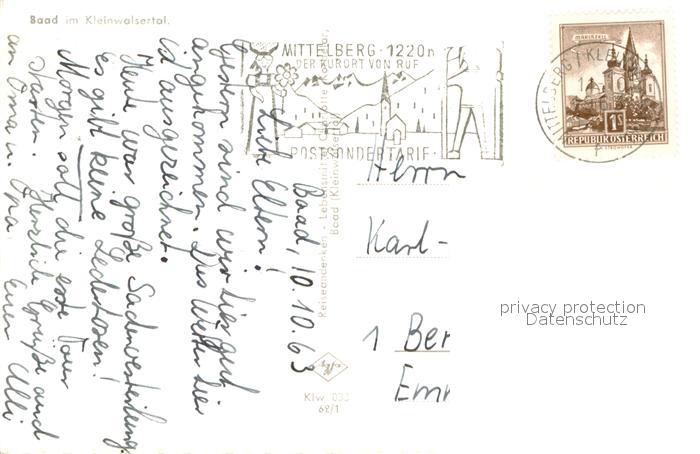 Baad im Kleinwalsertal.
Baad, 10.10.63
Liebe Eltern!
Gestern sind wir hier gut
angekommen. Das Wetter hier
ist ausgezeichnet.
Heute war große Sachenverteilung.
Es gibt keine Lederhosen!
Morgen soll die erste Tour
starten. Herzliche Grüße auch
an Oma u. Opa. Euer Ulli
MITTELBERG · 1220m
DER KURORT VON RUF
POSTSONDERTARIF
MITTELBERG / KLE
MARIAZELL
1S
REPUBLIK ÖSTERREICH
Reiseandenken - Lebensmittel
Baad (Kleinw
Klw. 033
62/1
Herrn
Karl-
1 Ber
Emr
privacy protection
Datenschutz